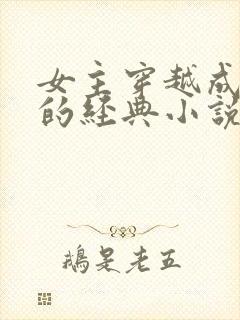 女主穿越成
的经典小說
鵝是老五